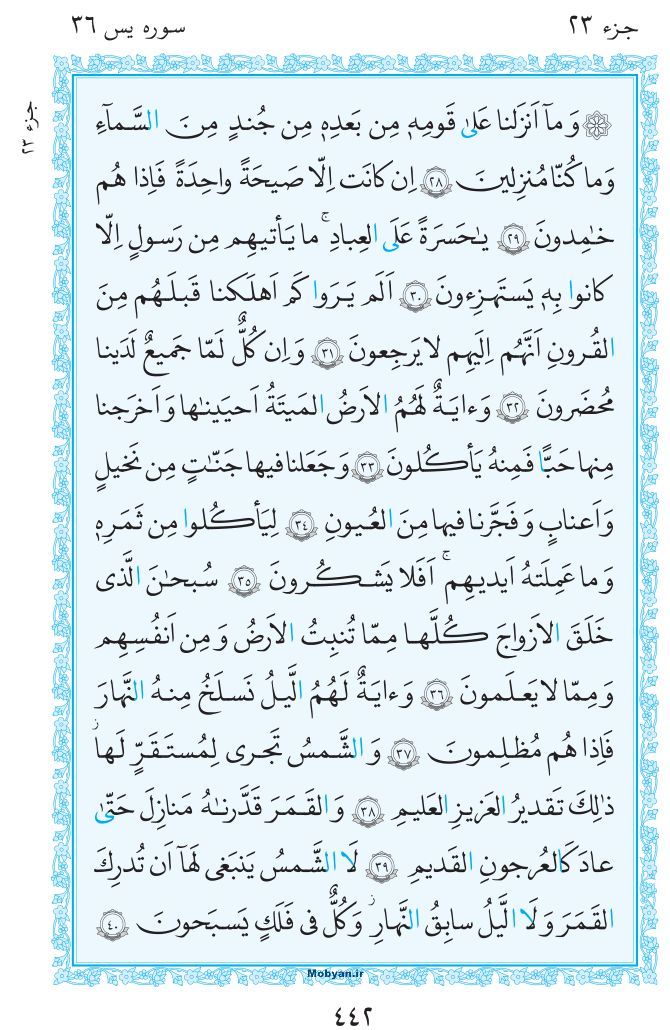 جزء ۲۳
سوره یس ۳۶
جزء ۲۳
۞ وَ مآ اَنزَلنا عَلىٰ قَومِهٖ مِن بَعدِهٖ مِن جُندٍ مِنَ السَّمآءِ
وَ ما كُنّا مُنزِلينَ ﴿٢٨﴾ اِن كانَت اِلّا صَيحَةً واحِدَةً فَاِذا هُم
خٰمِدونَ ﴿٢٩﴾ يٰحَسرَةً عَلَى العِبادِ ۚ ما يَأتيهِم مِن رَسولٍ اِلّا
كانوا بِهٖ يَستَهزِءونَ ﴿٣٠﴾ اَلَم يَرَوا كَم اَهلَكنا قَبلَهُم مِنَ
القُرونِ اَنَّهُم اِلَيهِم لا يَرجِعونَ ﴿٣١﴾ وَ اِن كُلٌّ لَمّا جَميعٌ لَدَينا
مُحضَرونَ ﴿٣٢﴾ وَ ءايَةٌ لَهُمُ الاَرضُ المَيتَةُ اَحيَينٰها وَ اَخرَجنا
مِنها حَبًّا فَمِنهُ يَأكُلونَ ﴿٣٣﴾ وَ جَعَلنا فيها جَنّٰتٍ مِن نَخيلٍ
وَ اَعنابٍ وَ فَجَّرنا فيها مِنَ العُيونِ ﴿٣٤﴾ لِيَأكُلوا مِن ثَمَرِهٖ
وَ ما عَمِلَتهُ اَيديهِم ۚ اَفَلا يَشكُرونَ ﴿٣٥﴾ سُبحٰنَ الَّذى
خَلَقَ الاَزواجَ كُلَّها مِمّا تُنبِتُ الاَرضُ وَ مِن اَنفُسِهِم
وَ مِمّا لا يَعلَمونَ ﴿٣٦﴾ وَ ءايَةٌ لَهُمُ الَّيلُ نَسلَخُ مِنهُ النَّهارَ
فَاِذا هُم مُظلِمونَ ﴿٣٧﴾ وَ الشَّمسُ تَجرى لِمُستَقَرٍّ لَها ۚ
ذٰلِكَ تَقديرُ العَزيزِ العَليمِ ﴿٣٨﴾ وَ القَمَرَ قَدَّرنٰهُ مَنازِلَ حَتّىٰ
عادَ كَالعُرجونِ القَديمِ ﴿٣٩﴾ لَا الشَّمسُ يَنبَغى لَهآ اَن تُدرِكَ
القَمَرَ وَ لَا الَّيلُ سابِقُ النَّهارِ ۚ وَ كُلٌّ فى فَلَكٍ يَسبَحونَ ﴿٤٠﴾
Mobyan.ir
۴۴۲